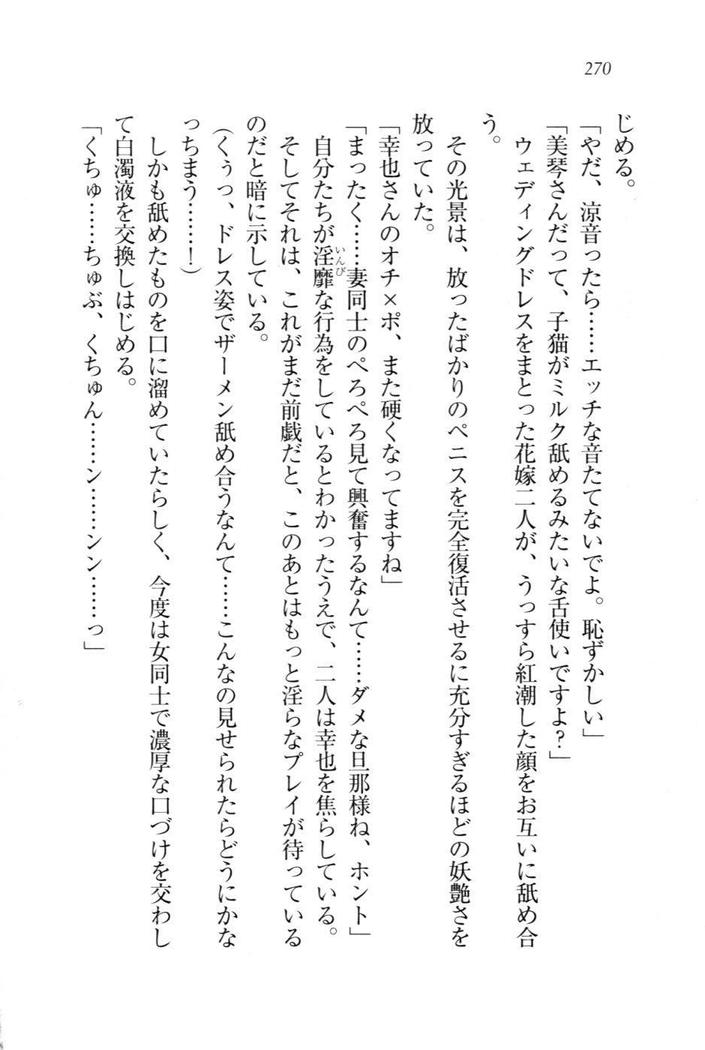 270
じめる。
「やだ、涼音ったら……エッチな音たてないでよ。恥ずかしい」
「美琴さんだって、子猫がミルク舐めるみたいな舌使いですよ?」
ウェディングドレスをまとった花嫁二人が、うっすら紅潮した顔をお互いに舐め合
う。
その光景は、放ったばかりのペニスを完全復活させるに充分すぎるほどの妖艶さを
放っていた。
「幸也さんのオチ×ポ、また硬くなってますね」
「まったく……妻同士のぺろぺろ見て興奮するなんて……ダメな旦那様ね、ホント」
自分たちが淫靡な行為をしているとわかったうえで、二人は幸也を焦らしている。
いんび
そしてそれは、これがまだ前戯だと、このあとはもっと淫らなプレイが待っている
のだと暗に示している。
(くぅっ、ドレス姿でザーメン舐め合うなんて……こんなの見せられたらどうにかな
っちまう……!)
しかも舐めたものを口に溜めていたらしく、今度は女同士で濃厚な口づけを交わし
て白濁液を交換しはじめる。
「くちゅ……ちゅぷ、くちゅん……ン……ンン……っ」